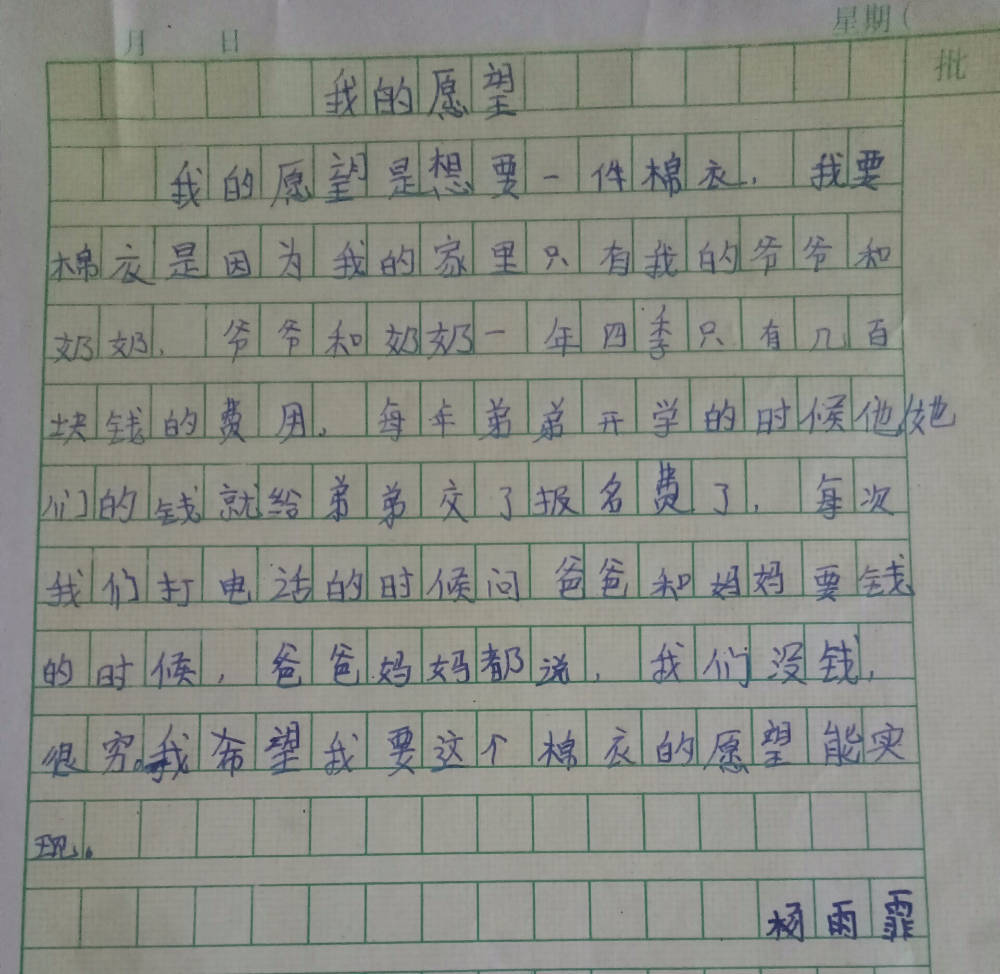 月 日 星期(
批
我的愿望
我的愿望是想要一件棉衣. 我要
棉衣是因为我的家里只有我的爷爷和
奶奶. 爷爷和奶奶一年四季只有几百
块钱的费用. 每年弟弟开学的时候他/她
们的钱就给弟弟交了报名费了. 每次
我们打电话的时候问爸爸和妈妈要钱
的时候, 爸爸妈妈都说. 我们没钱,
很穷。我希望我要这个棉衣的愿望能实
现。
杨雨霏